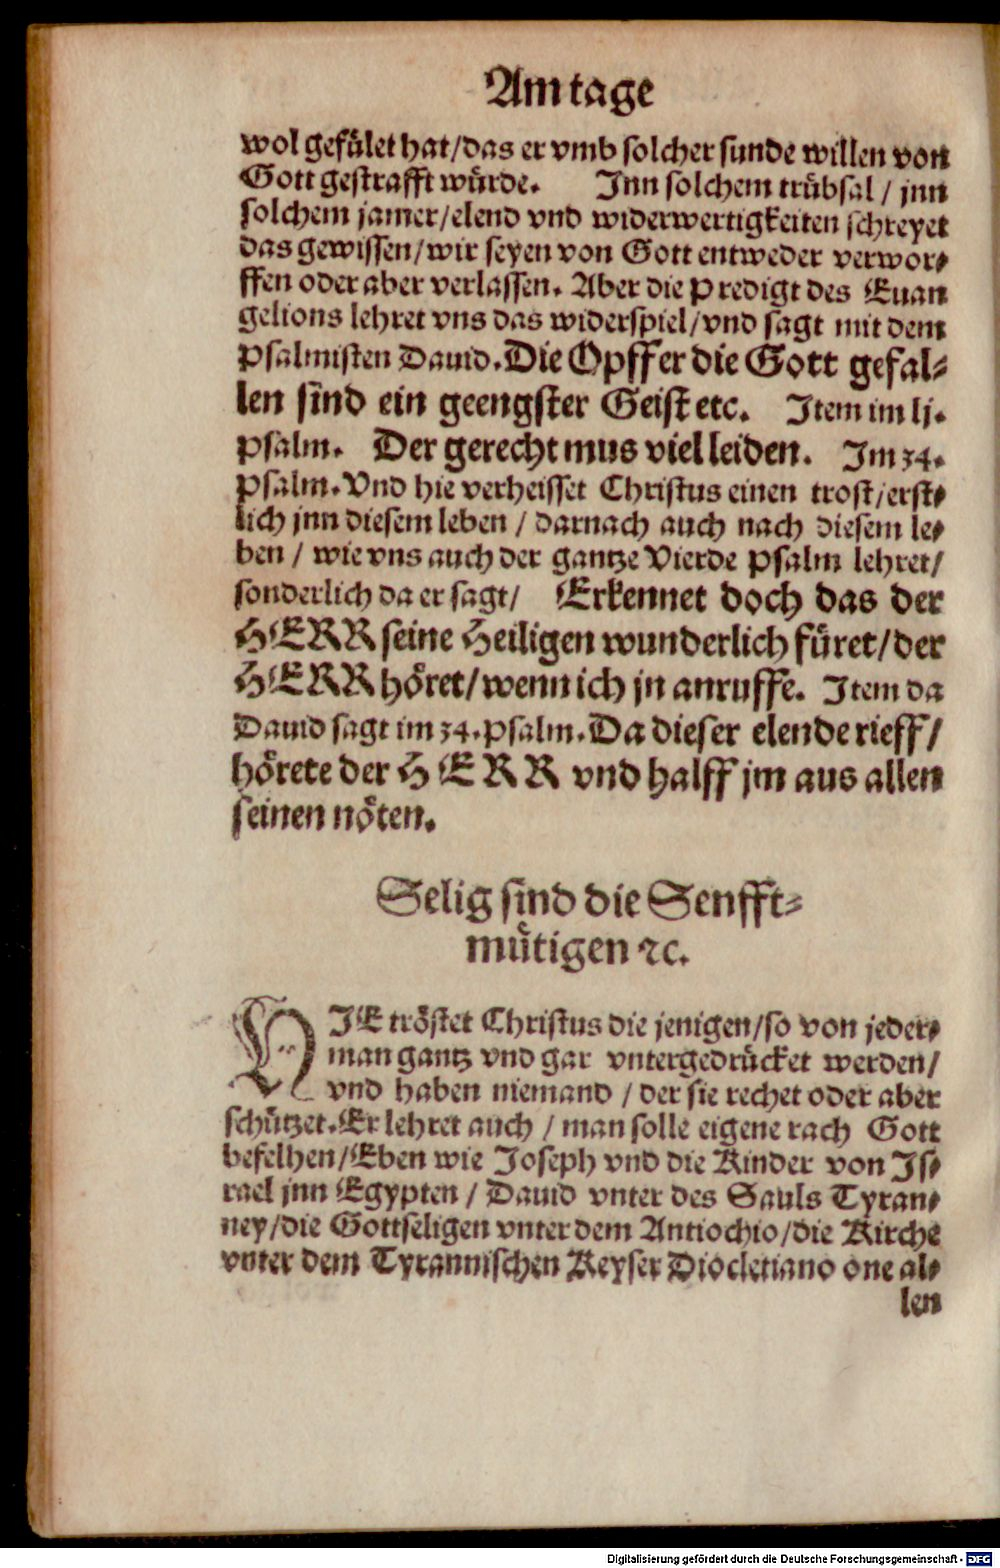 Am tage
wol gefület hat/das er vmb solcher sunde willen von
Gott gestrafft würde. Jnn solchem trübsal / jnn
solchem jamer/elend vnd widerwertigkeiten schreyet
das gewissen/wir seyen von Gott entweder verwor⸗
ffen oder aber verlassen. Aber die Predigt des Euan
gelions lehret vns das widerspiel/vnd sagt mit dem
Psalmisten Dauid. Die Opffer die Gott gefal⸗
len sind ein geengster Geist etc. Jtem im lj.
Psalm. Der gerecht mus viel leiden. Jm 34.
Psalm. Vnd hie verheisset Christus einen trost/erst⸗
lich jnn diesem leben / darnach auch nach diesem le⸗
ben / wie vns auch der gantze Vierde Psalm lehret/
sonderlich da er sagt/ Erkennet doch das der
HERR seine Heiligen wunderlich füret/der
HERR höret/wenn ich jn anruffe. Jtem da
Dauid sagt im 34. Psalm. Da dieser elende rieff/
hörete der HERR vnd halff jm aus allen
seinen nöten.
Selig sind die Senfft⸗
mütigen ⁊c.
HJE tröstet Christus die jenigen/so von jeder⸗
man gantz vnd gar vntergedrücket werden/
vnd haben niemand / der sie rechet oder aber
schützet. Er lehret auch / man solle eigene rach Gott
befelhen/Eben wie Joseph vnd die Kinder von Js⸗
rael jnn Egypten / Dauid vnter des Sauls Tyran⸗
ney/die Gottseligen vnter dem Antiochio/die Kirche
vnter dem Tyrannischen Keyser Diocletiano one al⸗
len
Digitalisierung gefördert durch die Deutsche Forschungsgemeinschaft - DFG